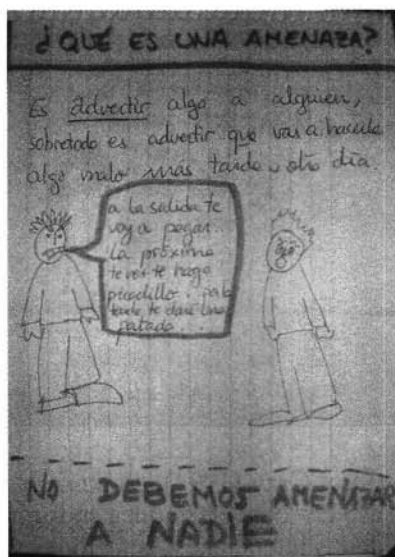 ¿QUÉ ES UNA AMENAZA?
Es advertir algo a alguien,
sobretodo es advertir que vas a hacerle
algo malo más tarde, otro día.
a la salida te
voy a pegar.
La próxima
te vez te hago
picadillo. por la
tarde te daré una
patada...
NO DEBEMOS AMENAZAR
A NADIE